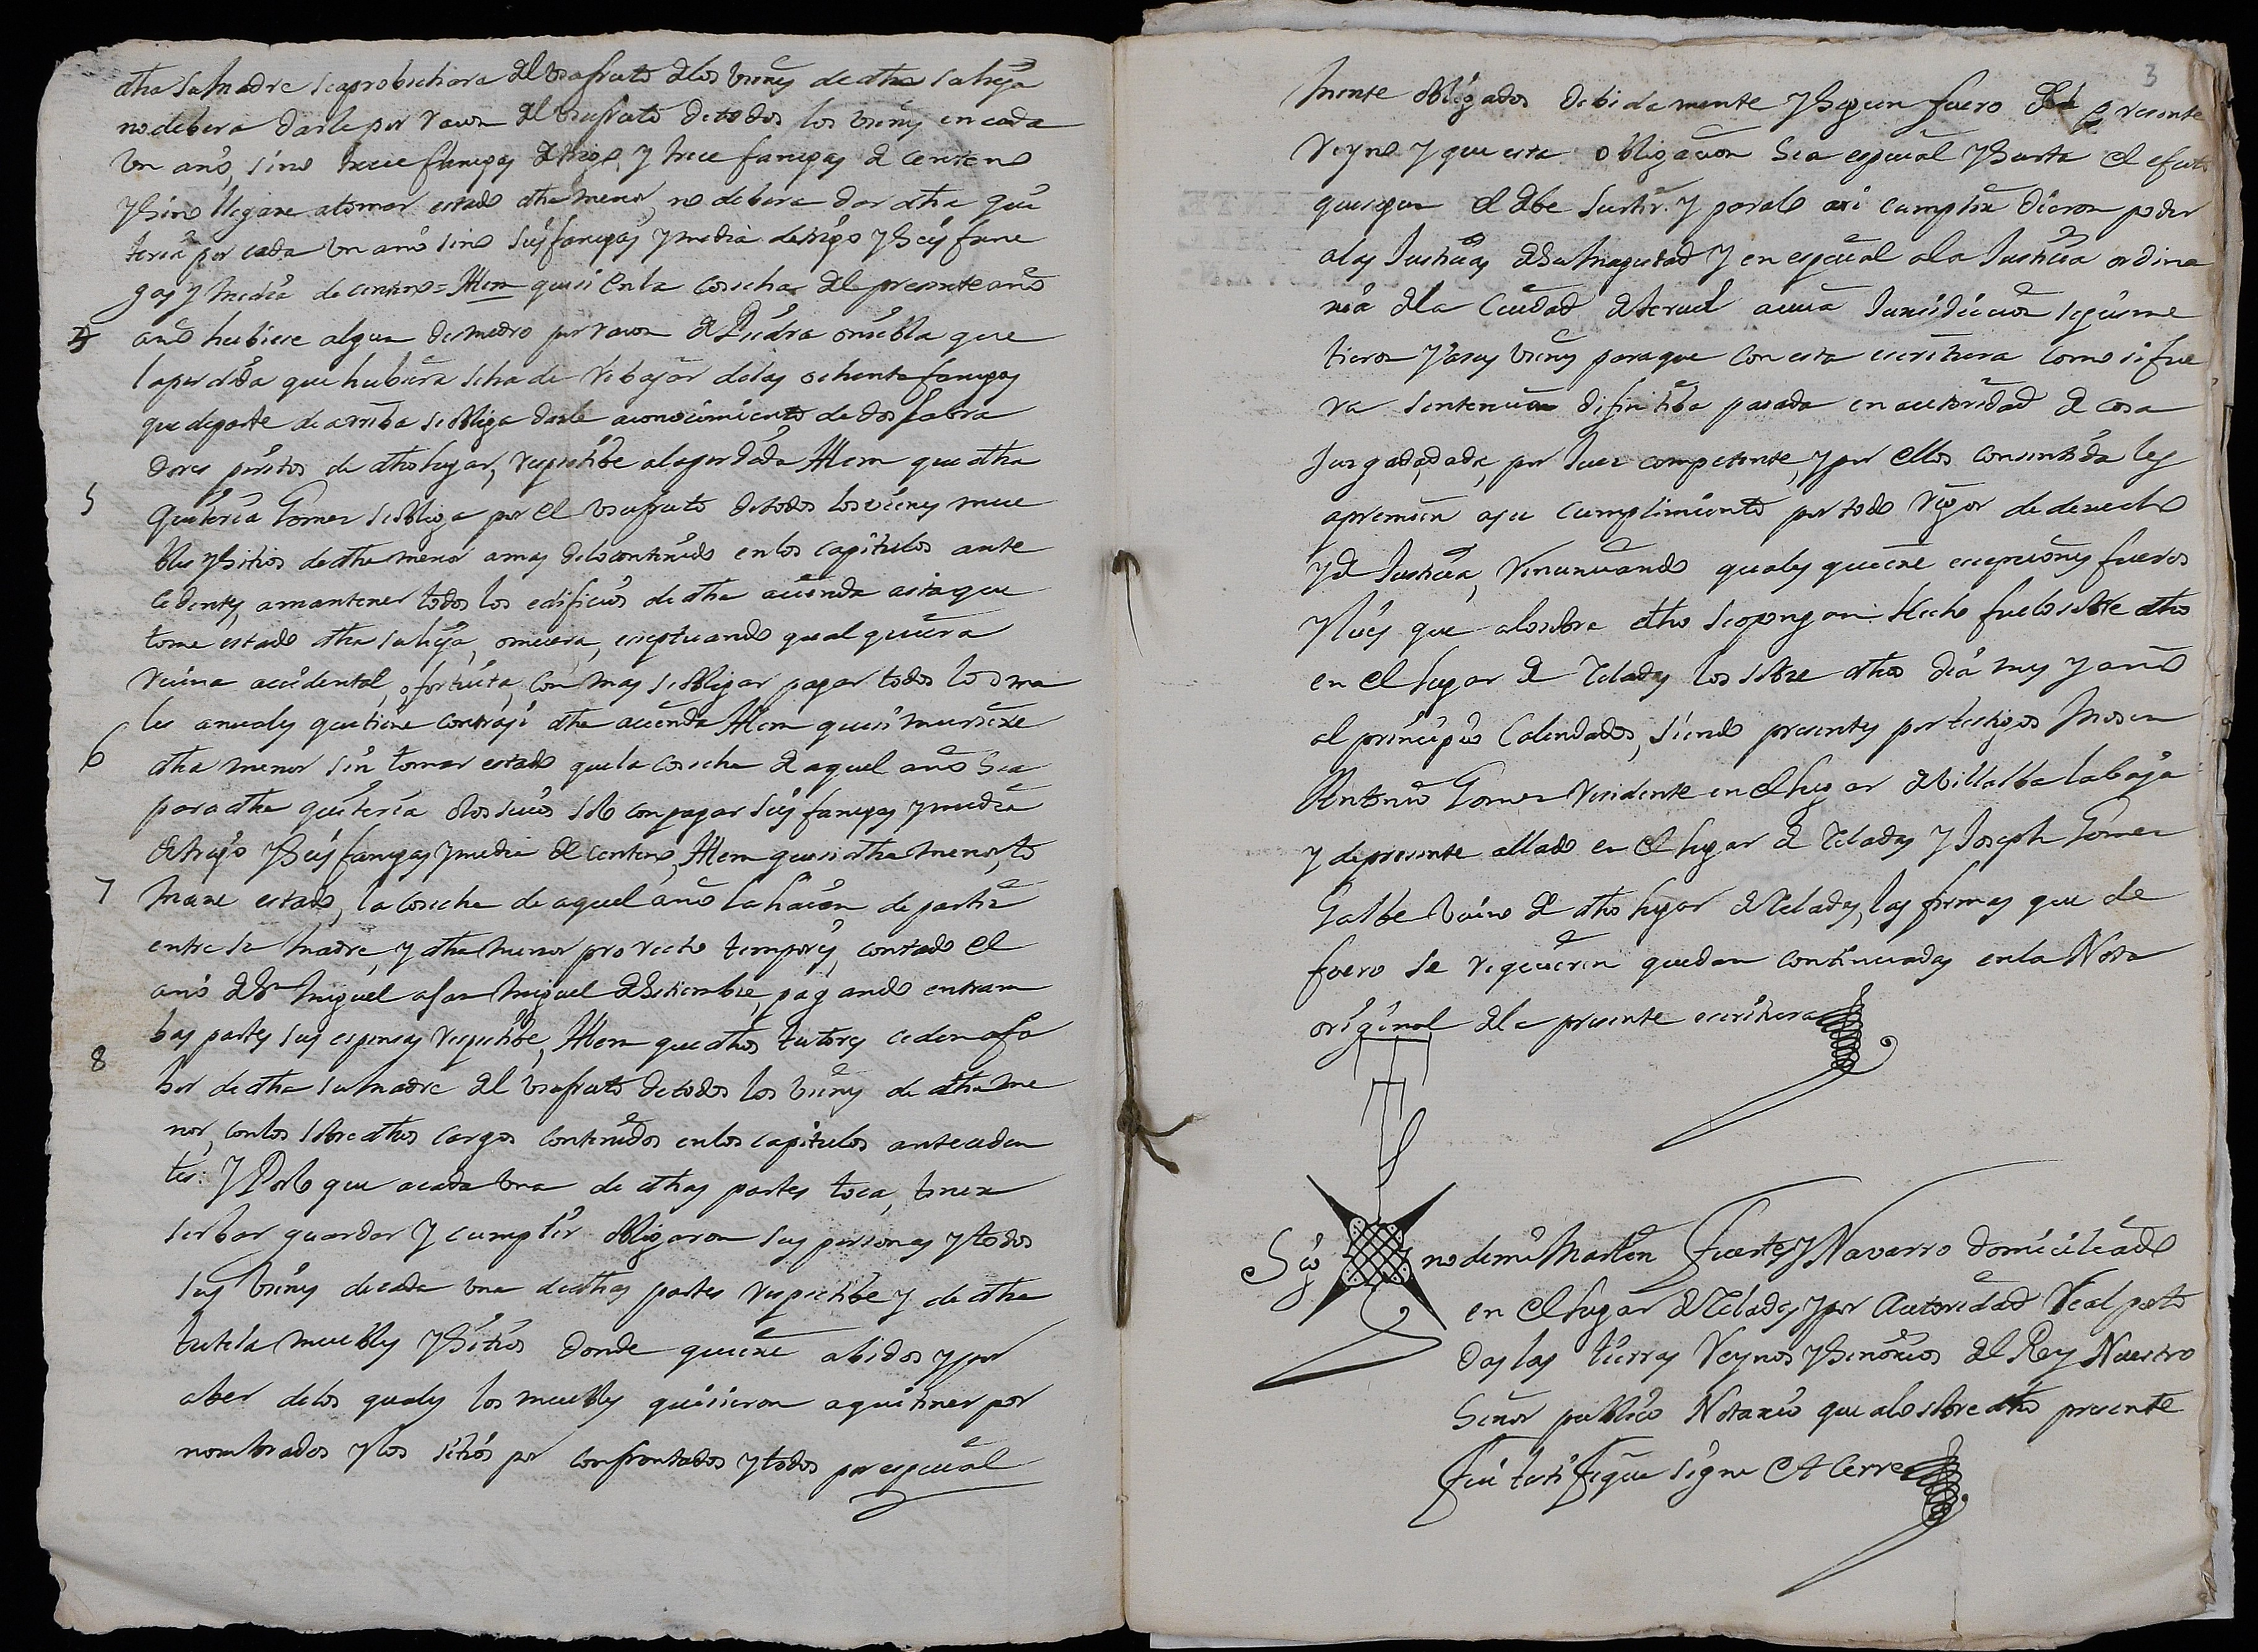 dha Su Madre se aprobechara del Vsafruto de los vienes de dha su hija
no debera darle por razon del Vsufruto de todos los vienes en cada
Vn año, sino trece fanegas de trigo, y trece fanegas de centeno
y Si no llegare a tomar estado dha menor, no debera dar dha qui
teria por cada Vn año sino seis fanegas y media de trigo y Seis fane
gas y media de centeno = Ittem que si en la cosecha del presente año
4 año hubiere algun desmedro por razon de Piedra o niebla que
la perdida que hubiera se ha de rebajar de las ochenta fanegas
que de parte de arriba se obliga darle a conocimiento de dos labra
dores peritos de dho lugar, respectibe a la perdida Ittem que dha
5 Quiteria Gomez se obliga por el vsufruto de todos los vienes mue
bles y Sitios de dha menor a mas de lo contenido en los capitulos ante
cedentes, a mantener todos los edificios de dha acienda asta que
tome estado dha su hija, o muera, exeptuando qualquiera
ruina accidental, o fortuita, con mas se obliga a pagar todos los ma
les anuales que tiene contra si dha acienda Ittem que si muriere
6 dha menor sin tomar estado que la cosecha de aquel año Sea
para dha quiteria o los suios solo con pagar seis fanegas y media
de trigo y Seis fanegas y media de Centeno, Ittem que si dha menor to
7 mare estado, la cosecha de aquel año la haian de partir
entre su Madre, y dha Menor pro recto temporis, contado el
año de Sn Miguel a san Miguel de Setiembre, pagando entram
bas partes sus espensas respectibe, Ittem que dhos tutores ceden a fa
8 bor de dha su madre del vsufruto de todos los vienes de dha me
nor, con los sobre dhos cargos contenidos en los capitulos anteceden
tes: Y Por lo que a cada vna de dhas partes toca, tener
serbar guardar y cumplir obligaron sus personas y todos
sus vienes de cada vna de dhas partes respectibe y de dha
tutela muebles y Sitios donde quiere abidos y por
aber de los quales los muebles quisieron aqui tener por
nombrados y los sitios por confrontados y todos por especial
3
mente obligados debidamente y Segun fuero del presente
Reyno y que esta obligacion Sea especial y Surta el efecto
que segun el debe surtir. y para lo asi cumplir dieron poder
a las Justicias de Su Magestad y en especial a la Justicia ordina
ria de la Ciudad de teruel a cuia Jurisdicion se some
tieron y a sus vienes para que con esta escritura como si fue
ra sentencia difinitiba pasada en autoridad de cosa
Juzgada, dada, por Juez competente, y por ellos consentida les
apremien a su cumplimiento por todo rigor de derecho
y de Justicia, Renunciando quales quiere excepciones fueros
y leies que a lo sobre dho se opongan Hecho fue lo sobre dho
en el lugar de Celadas los sobre dhos dia mes y año
al principio Calendados, siendo presentes por testigos Mosen
Antonio Gomez residente en el lugar de Villalba la baja
y de presente allado en el lugar de Celadas y Joseph Gomez
Galbe Vecino de dho lugar de Celadas, las firmas que de
fuero se requieren quedan continuadas en la Nota
original de la presente escritura
Sig no de mi Martin Fuertes y Navarro domiciliado
en el lugar de Celadas y por Autoridad Real por to
das las tierras Reynos y Senorios del Rey Nuestro
Señor publico Notario que a lo sobre dho presente
Fui testifique signe et Cerre